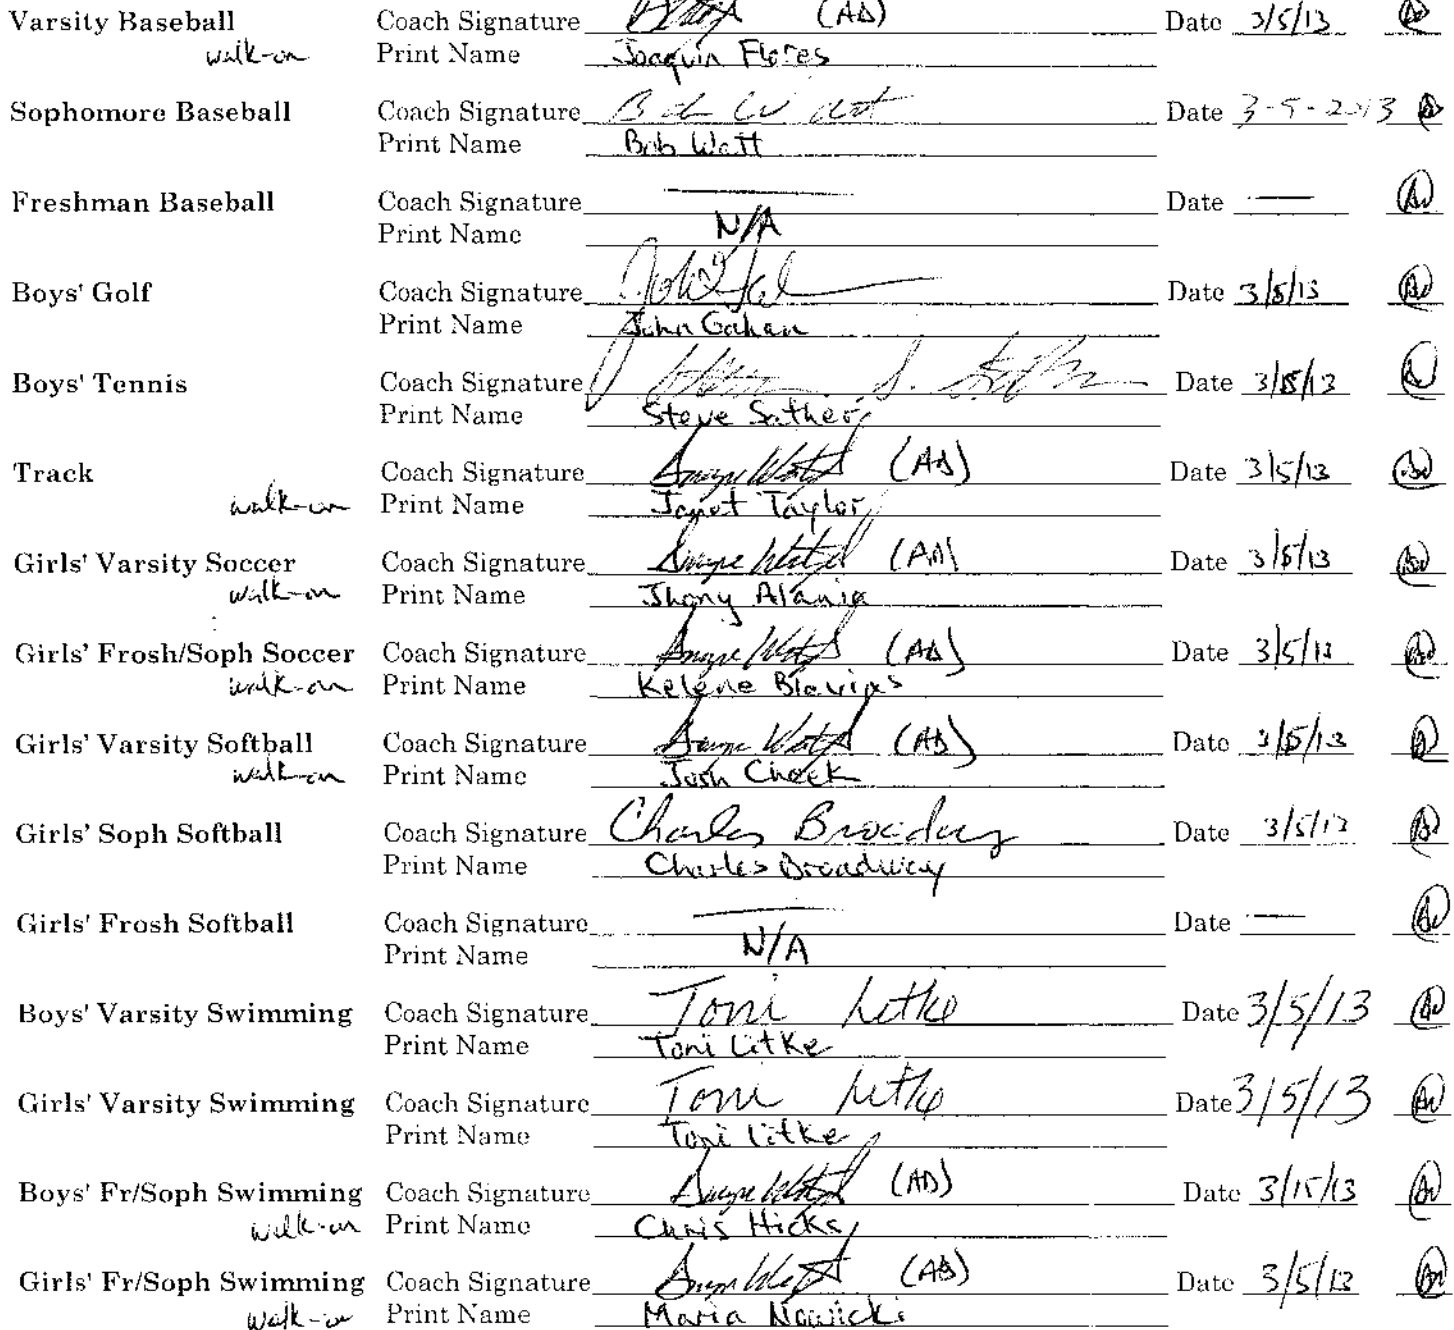 Varsity Baseball Coach Signature (AD) Date 3/5/13
walk-on Print Name Joaquin Flores
Sophomore Baseball Coach Signature Bob Watt Date 3-5-2013
Print Name Bob Watt
Freshman Baseball Coach Signature — Date —
Print Name N/A
Boys' Golf Coach Signature Date 3/5/13
Print Name John Gahan
Boys' Tennis Coach Signature Date 3/5/13
Print Name Steve Sather
Track Coach Signature (AD) Date 3/5/13
walk-on Print Name Janet Taylor
Girls' Varsity Soccer Coach Signature (AD) Date 3/5/13
walk-on Print Name Jhony Alania
Girls' Frosh/Soph Soccer Coach Signature (AD) Date 3/5/13
walk-on Print Name Kelene
Girls' Varsity Softball Coach Signature (AD) Date 3/5/13
walk-on Print Name Josh Cheek
Girls' Soph Softball Coach Signature Charles Broadway Date 3/5/13
Print Name Charles Broadway
Girls' Frosh Softball Coach Signature — Date —
Print Name N/A
Boys' Varsity Swimming Coach Signature Toni Litke Date 3/5/13
Print Name Toni Litke
Girls' Varsity Swimming Coach Signature Toni Litke Date 3/5/13
Print Name Toni Litke
Boys' Fr/Soph Swimming Coach Signature (AD) Date 3/15/13
walk-on Print Name Chris Hicks
Girls' Fr/Soph Swimming Coach Signature (AD) Date 3/5/13
walk-on Print Name Maria Nowicki